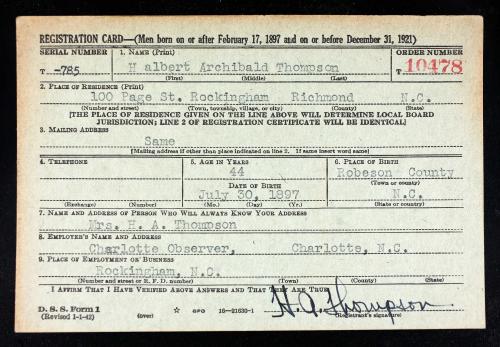 REGISTRATION CARD—(Men born on or after February 17, 1897 and on or before December 31, 1921)
SERIAL NUMBER 1. NAME (Print) ORDER NUMBER
T -785 H albert Archibald Thompson T 10478
(First) (Middle) (Last)
2. PLACE OF RESIDENCE (Print)
100 Page St. Rockingham Richmond N.C.
(Number and street) (Town, township, village, or city) (County) (State)
[THE PLACE OF RESIDENCE GIVEN ON THE LINE ABOVE WILL DETERMINE LOCAL BOARD
JURISDICTION; LINE 2 OF REGISTRATION CERTIFICATE WILL BE IDENTICAL]
3. MAILING ADDRESS
Same
[Mailing address if other than place indicated on line 2. If same insert word same]
4. TELEPHONE 5. AGE IN YEARS 6. PLACE OF BIRTH
44 Robeson County
DATE OF BIRTH (Town or county)
July 30, 1897 N.C.
(Exchange) (Number) (Mo.) (Day) (Yr.) (State or country)
7. NAME AND ADDRESS OF PERSON WHO WILL ALWAYS KNOW YOUR ADDRESS
Mrs. H. A. Thompson
8. EMPLOYER'S NAME AND ADDRESS
Charlotte Observer, Charlotte, N.C.
9. PLACE OF EMPLOYMENT OR BUSINESS
Rockingham, N.C.
(Number and street or R. F. D. number) (Town) (County) (State)
I AFFIRM THAT I HAVE VERIFIED ABOVE ANSWERS AND THAT THEY ARE TRUE.
H. A. Thompson
D. S. S. Form 1 (Registrant's signature)
(Revised 1-1-42) (over) ☆ GPO 16—21630-1